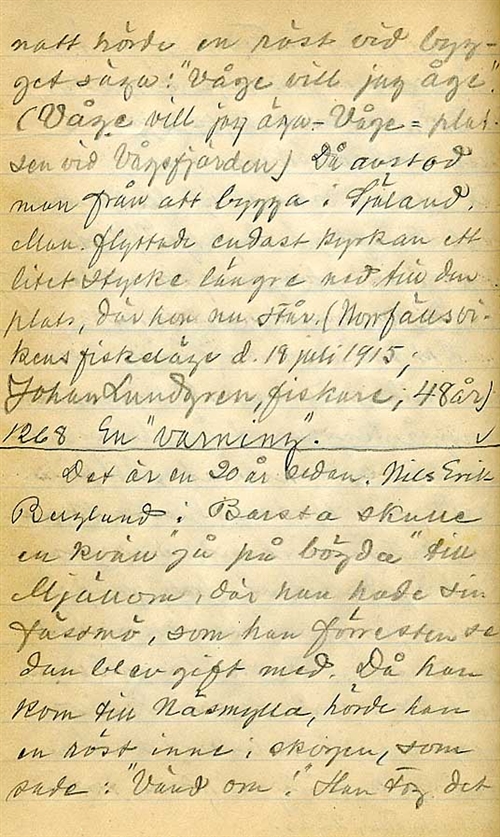 natt hörde en röst vid byg-
get säga: "Våge vill jag äge".
(Våge vill jag äga. - Våge = plat-
sen vid Vågsfjärden) Då avstod
man från att bygga i Själand.
Man flyttade endast kyrkan ett
litet stycke längre ned till den
plats, där hon nu står. (Norrfällsvi-
kens fiskeläge d. 19 juli 1915;
Johan Lundgren, fiskare; 48 år)
1268 En "varning". ✓
Det är en 20 år sedan. Nils Erik
Berglund i Barsta skulle
en kväll "gå på bögda" till
Mjällom, där han hade sin
fässmö, som han förresten se
dan blev gift med. Då han
kom till Näsmylla, hörde han
en röst inne i skogen, som
sade: "Vänd om!" Han tog det